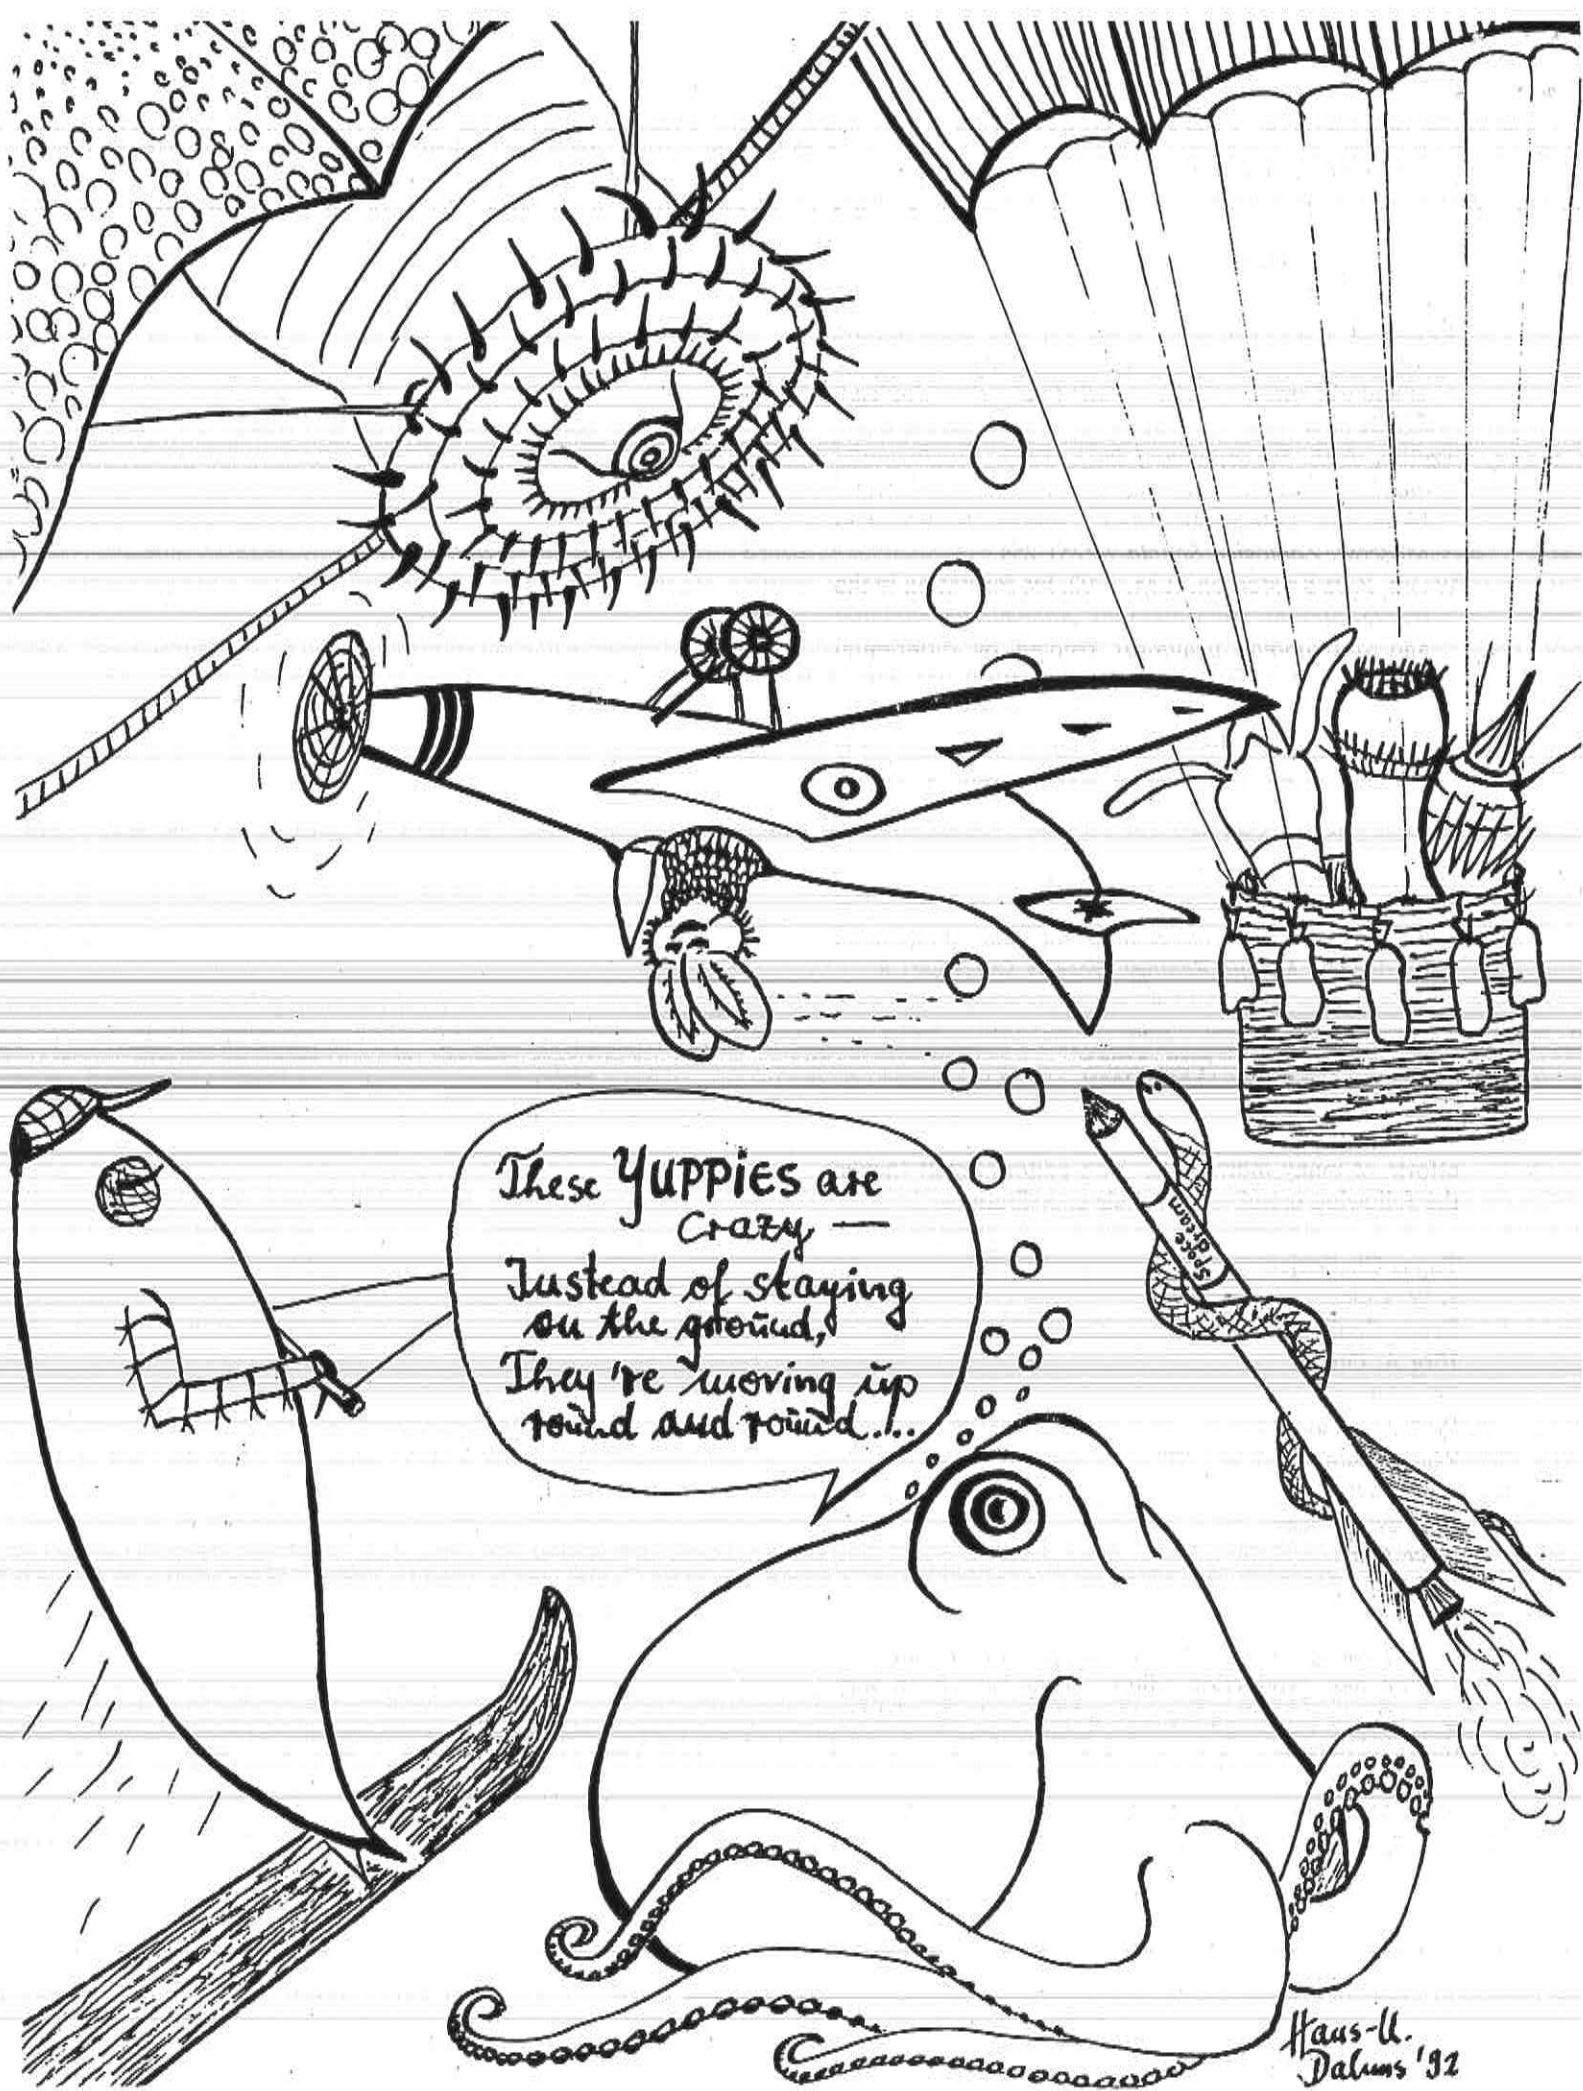 These YUPPiES are
crazy —
Instead of staying
on the ground,
They're moving up
round and round....
Space
dream
Hans-U.
Dahms '92